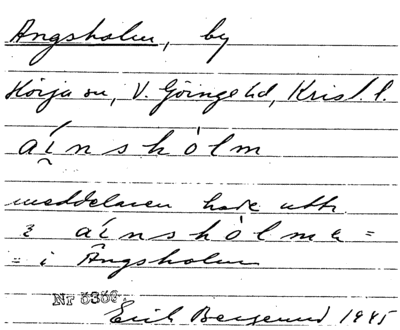 Ängsholm, by
Hörja sn, V. Göinge hd, Krist. l.
aínshòlm
meddelaren hade utt.
i aínshòlma =
= i Ängsholm
Nr 5350.
Erik Bergrund 1945